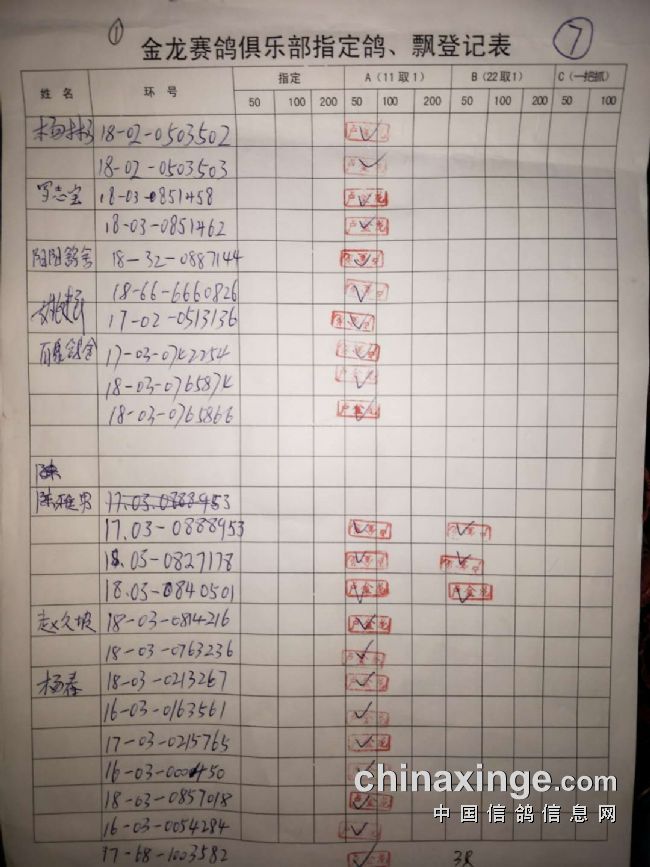 ① ⑦
金龙赛鸽俱乐部指定鸽、飘登记表
姓名 环号 指定 A(11取1) B(22取1) C(一把抓)
50 100 200 50 100 200 50 100 200 50 100
杨林 18-02-0503502
18-02-0503503
罗志宝 18-03-0851458
18-03-0851462
阳阳鸽舍 18-32-0887144
18-66-6660826
17-02-0513136
17-03-0742254
18-03-0765874
18-03-0765866
陈
陈雅男 17.03.0888953
17.03-0888953
18.03-0827178
18.03-0840501
赵久坡 18-03-0814216
18-03-0763236
杨春 18-03-0213267
16-03-0163561
17-03-0215765
16-03-000450
18-03-0857018
16-03-0054284
17-68-1003582
chinaxinge.com
中国信鸽信息网